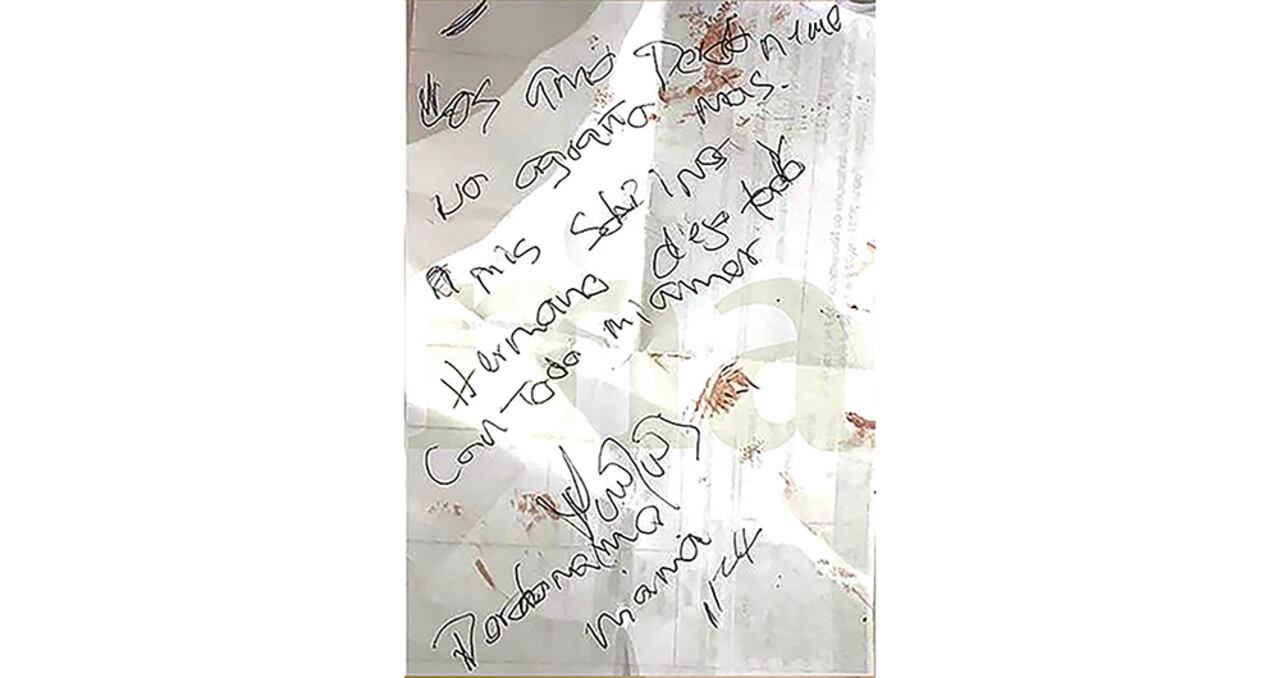 Los amo Perdóneme
no aguanto más.
A mis sobrinos
Hermano dejo todo
Con Todo mi amor
Perdóname
mamá
11-4